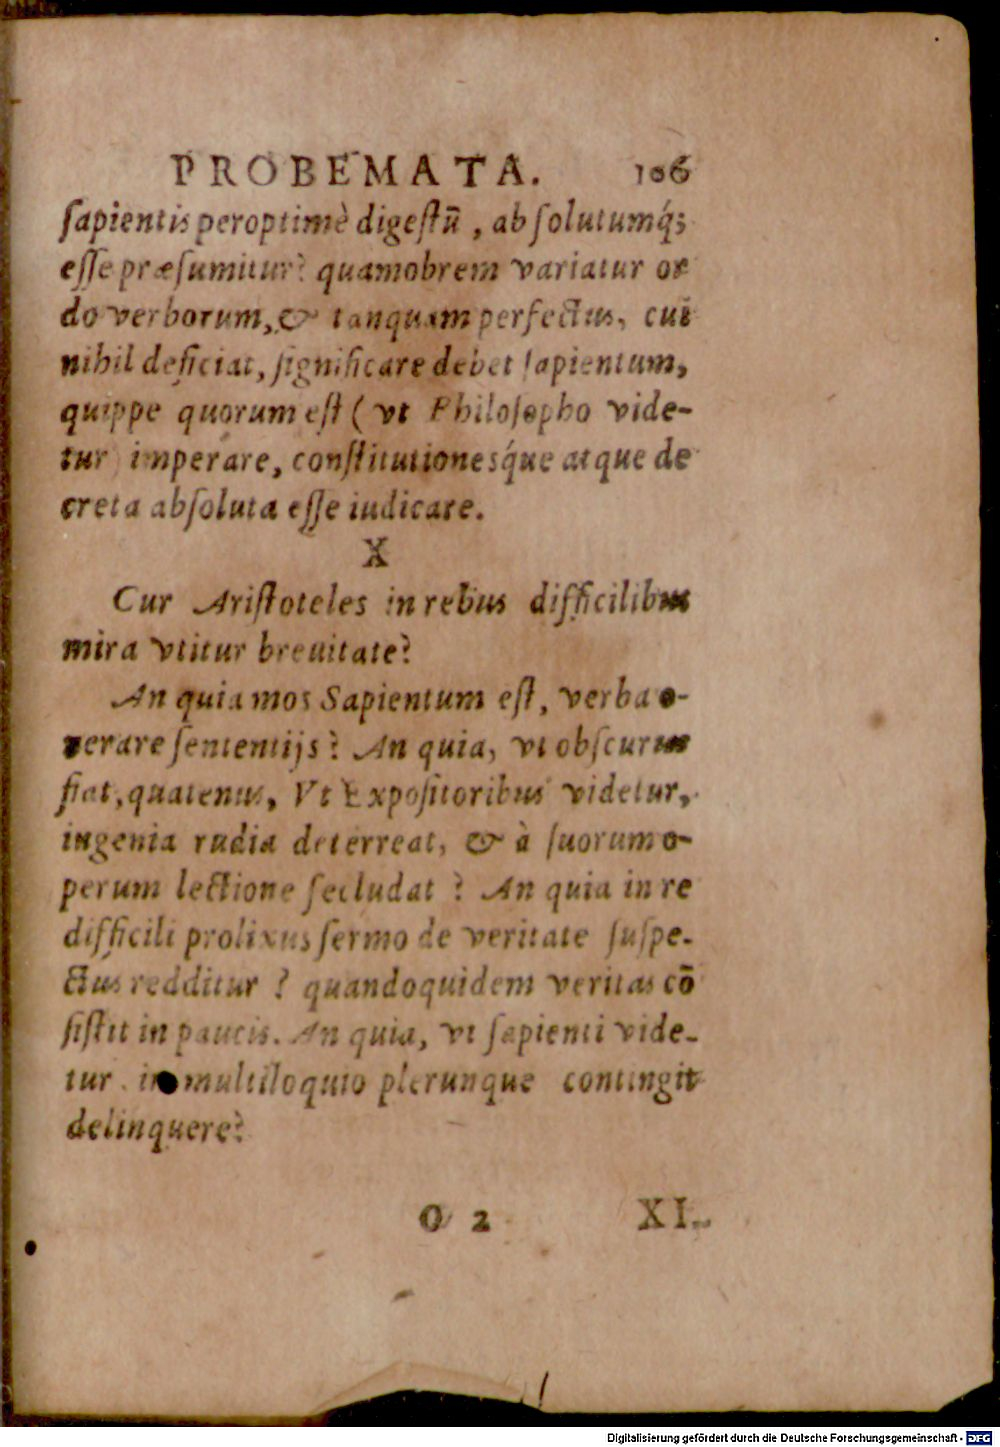 PROBEMATA. 106
sapientis peroptimè digestū, absolutumq́;
esse præsumitur? quamobrem variatur or
do verborum, & tanquam perfectus, cui
nihil deficiat, significare debet sapientum,
quippe quorum est (vt Philosopho vide-
tur imperare, constitutionesq́ue atque de
creta absoluta esse iudicare.
X
Cur Aristoteles in rebus difficilibus
mira vtitur breuitate?
An quia mos Sapientum est, verba o-
nerare sententijs? An quia, vt obscurus
fiat, quatenus, Vt Expositoribus videtur,
ingenia rudia deterreat, & à suorum o-
perum lectione secludat? An quia in re
difficili prolixus sermo de veritate suspe-
ctus redditur? quandoquidem veritas cō
sistit in paucis. An quia, vt sapienti vide-
tur in multiloquio plerunque contingit
delinquere?
O 2 XI.
Digitalisierung gefördert durch die Deutsche Forschungsgemeinschaft - DFG